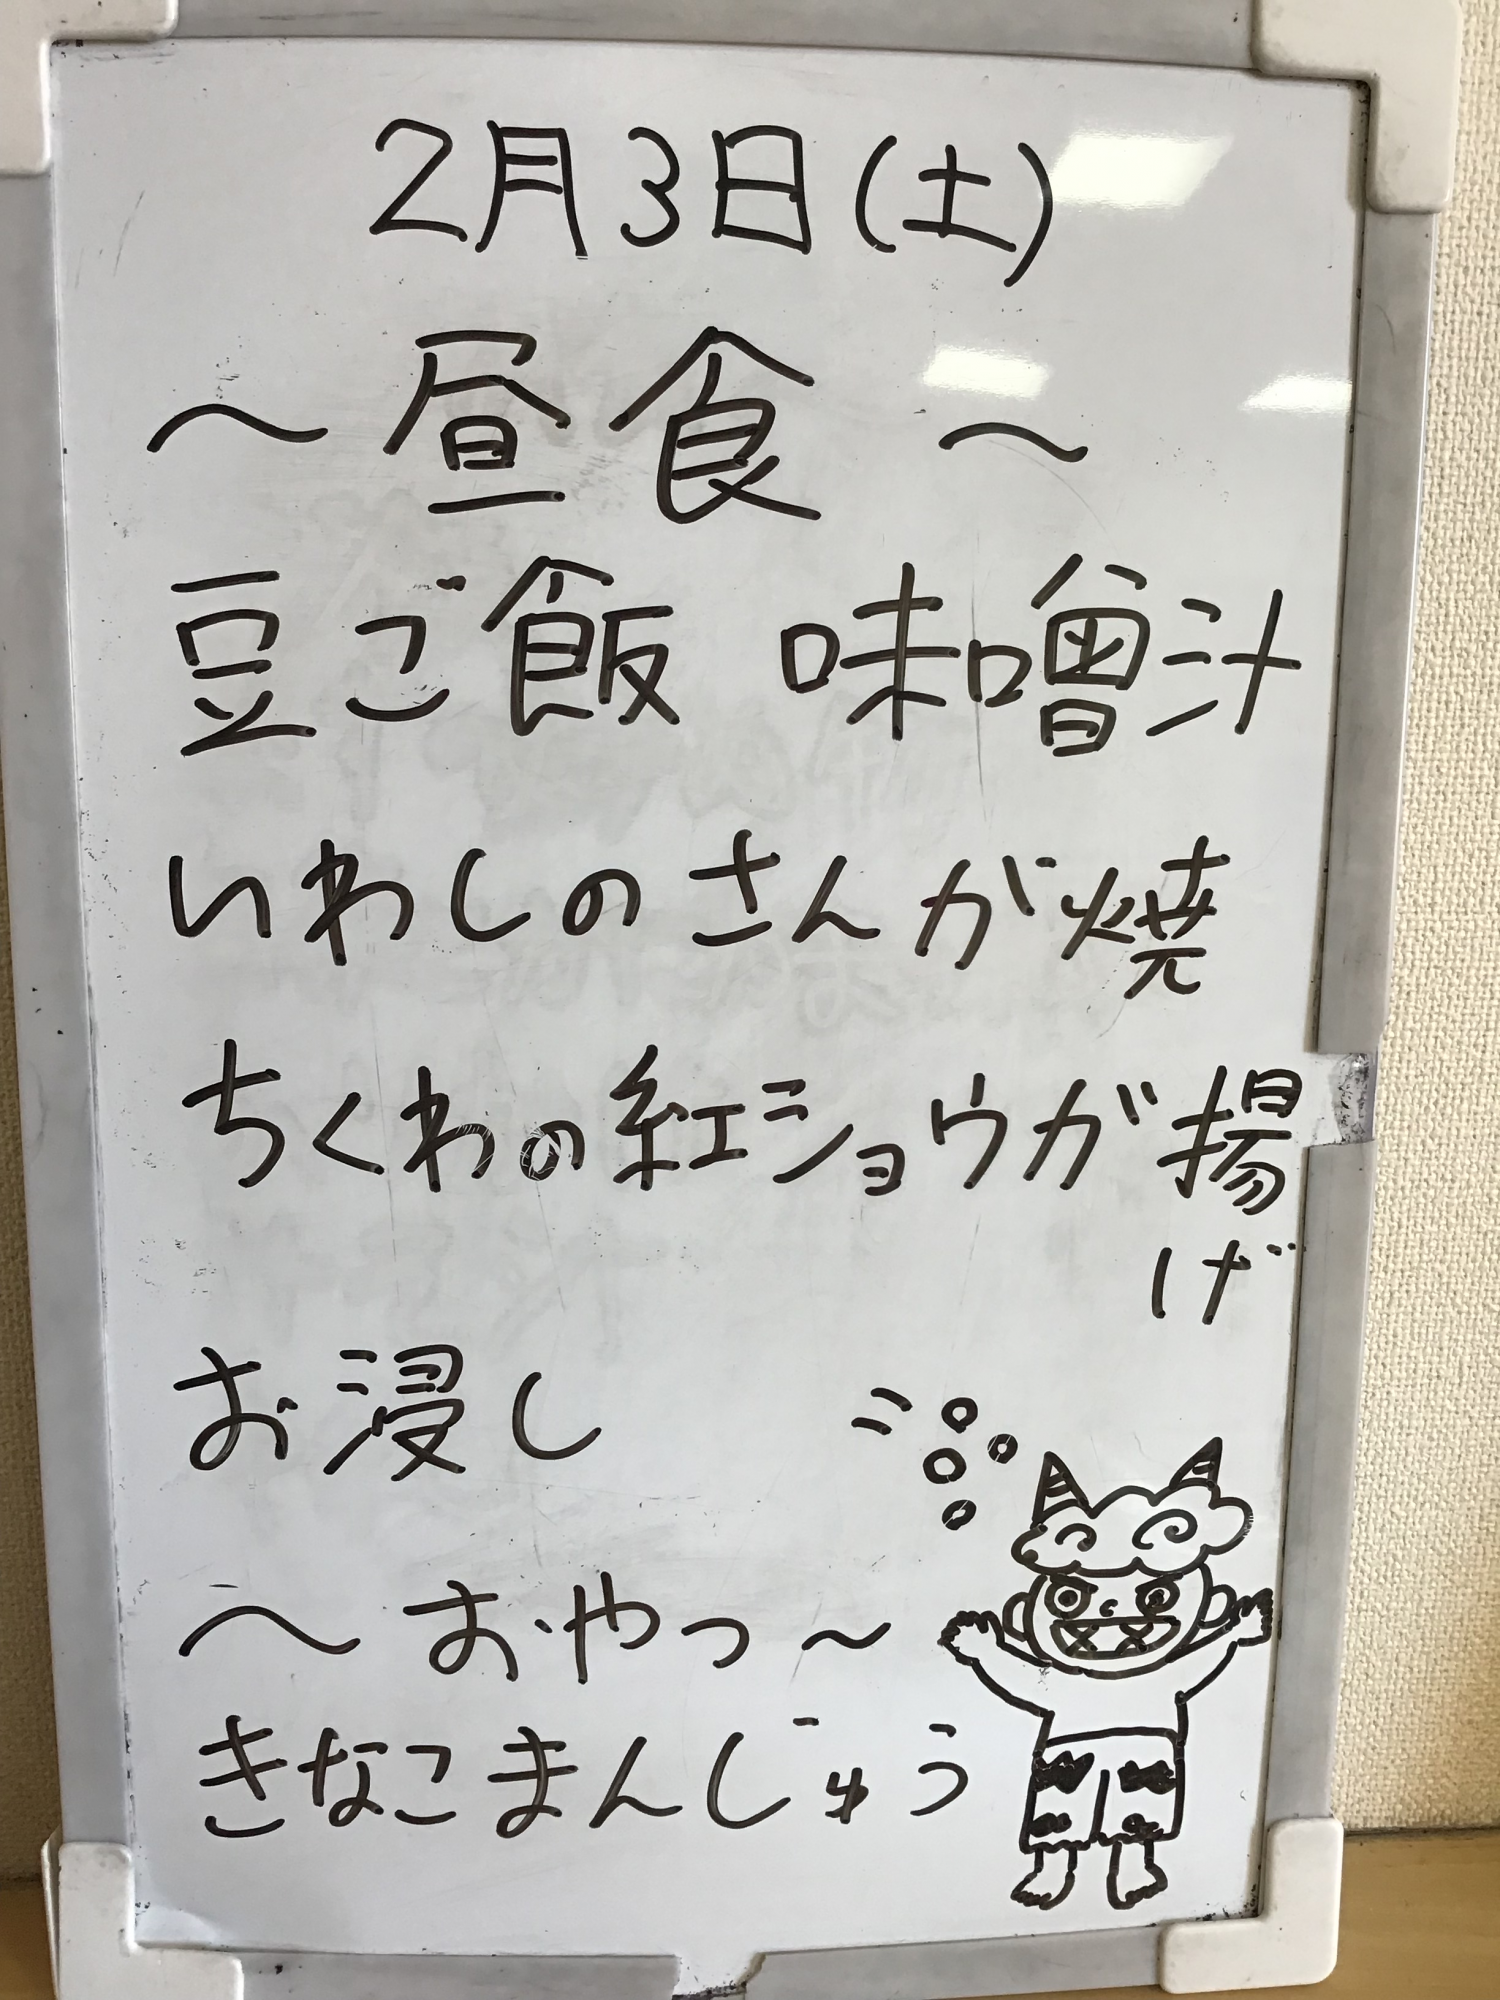 2月3日(土)
〜昼食〜
豆ご飯 味噌汁
いわしのさんが焼
ちくわの紅ショウガ揚
げ
お浸し
〜おやつ〜
きなこまんじゅう